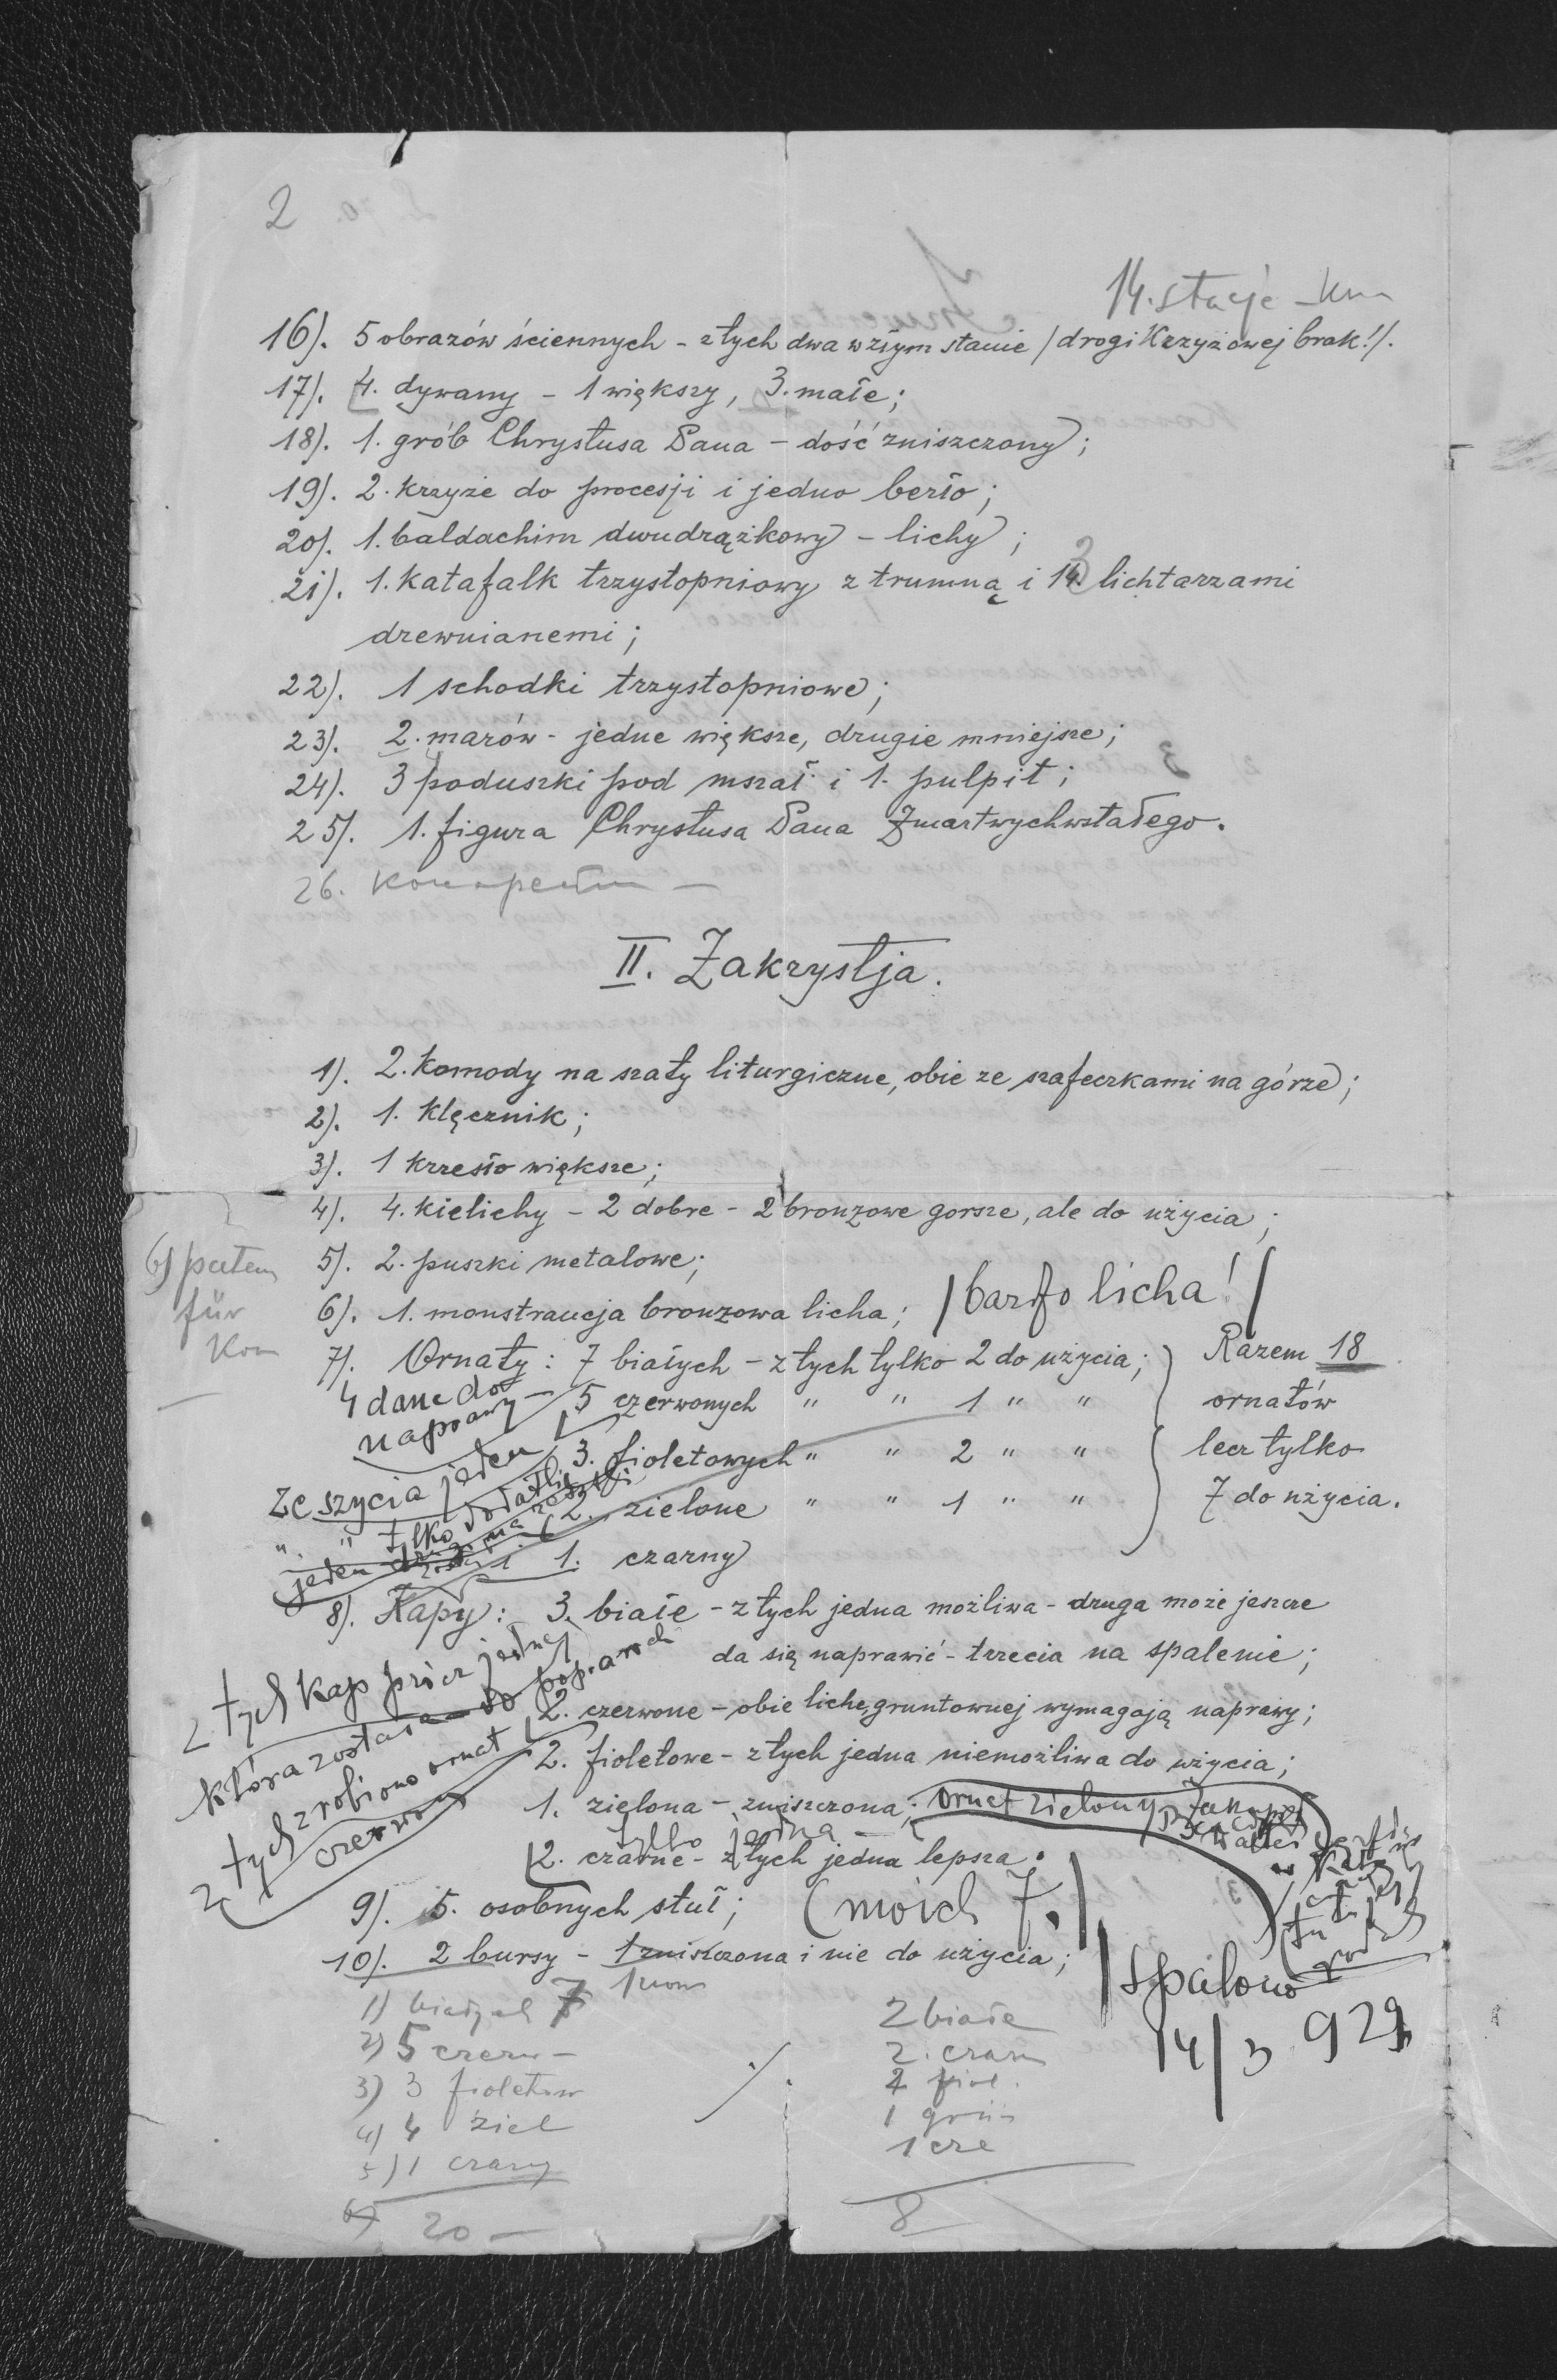 2
14. stacje
16). 5 obrazów ściennych - z tych dwa w złym stanie /drogi Krzyżowej brak!/.
17). 4. dywany - 1 większy, 3. małe;
18). 1. grób Chrystusa Pana - dość zniszczony;
19). 2. krzyże do procesji i jedno berło;
20). 1. baldachim dwudrążkowy - lichy;
21). 1. katafalk trzystopniowy z trumną i lichtarzami
drewnianemi;
22). 1 schodki trzystopniowe;
23). 2. marów - jedne większe, drugie mniejsze;
24). 3 poduszki pod mszał i 1. pulpit;
25). 1. figura Chrystusa Pana Zmartwychwstałego.
26.
II. Zakrystja.
1). 2. komody na szaty liturgiczne, obie ze szafeczkami na górze;
2). 1. klęcznik;
3). 1 krzesło większe;
4). 4. kielichy - 2 dobre - 2 bronzowe gorsze, ale do użycia;
5). 2. puszki metalowe;
6) paten
für
Kom
6). 1. monstrancja bronzowa licha; /bardzo licha!/
7). Ornaty: 7 białych - z tych tylko 2 do użycia;
5 czerwonych " " 1 " "
3. fioletowych " " 2 " "
2. zielone " " 1 " "
1. czarny
Razem 18
ornatów
lecz tylko
7 do użycia.
4 dane do
naprawy -
ze szycia jeden
" " tylko
jeden
8). Kapy: 3. białe - z tych jedna możliwa - druga może jeszcze
da się naprawić - trzecia na spalenie;
2. czerwone - obie liche, gruntownej wymagają naprawy;
2. fioletowe - z tych jedna niemożliwa do użycia;
1. zielona - zniszczona; ornat zielony
tylko jedna -
2. czarne - z tych jedna lepsza.
z tych kap prócz jednej
która została do
z tych zrobiono ornat
czerwony
9). 5. osobnych stuł; (moich 7.)
10). 2 bursy - 1 zniszczona i nie do użycia;
spalono
14/3 929
1) białych 7
2) 5 czerw -
3) 3 fioletow
4) 4 ziel
5) 1 czarny
6)
20 -
2 białe
2. czarn
2 fiol.
1 grün
1 cze
8